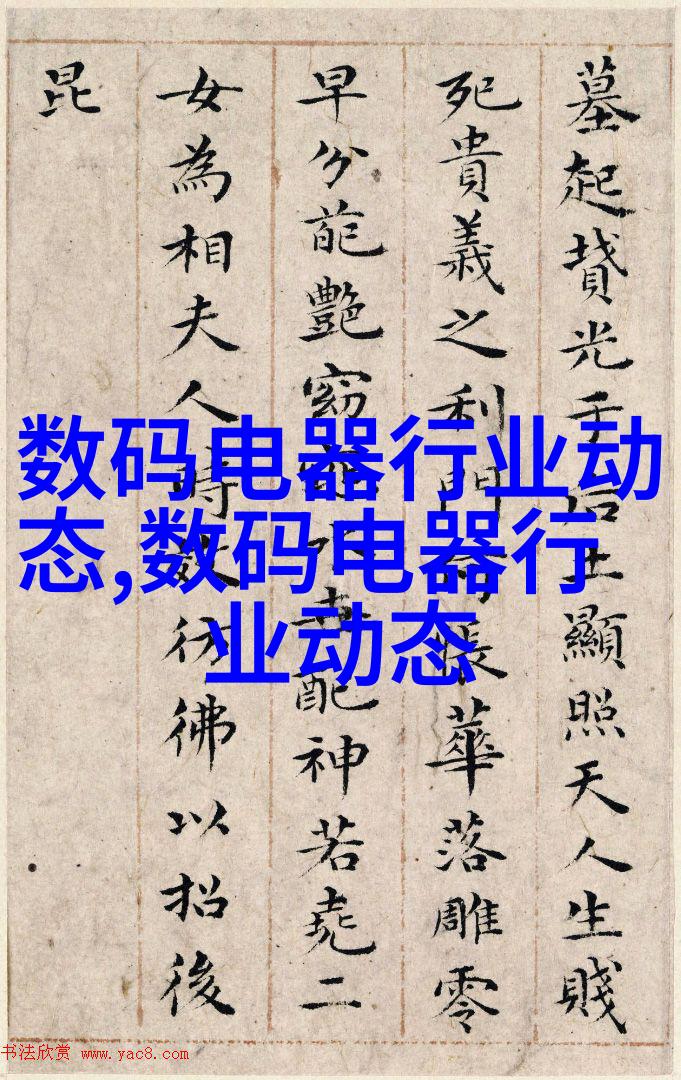 墓起光于后土顯照天人生賤
死貴義之利門帳華落雕零
早分葩艷窈配神若堯二
女為相夫人時效彷彿以招後
昆
数码电器行业动
态,数码电器行
业动态
书法欣赏 www.yac8.com